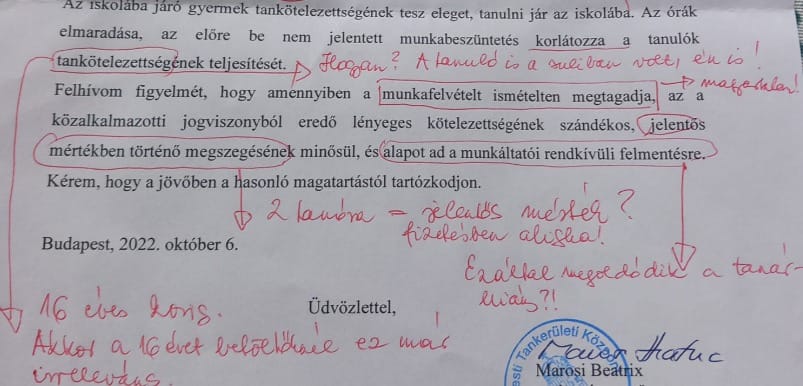 Az iskolába járó gyermek tankötelezettségének tesz eleget, tanulni jár az iskolába. Az órák
elmaradása, az előre be nem jelentett munkabeszüntetés korlátozza a tanulók
tankötelezettségének teljesítését. Hogyan? A tanuló is a suliban volt, én is!
Felhívom figyelmét, hogy amennyiben a munkafelvételt ismételten megtagadja, az a
közalkalmazotti jogviszonyból eredő lényeges kötelezettségének szándékos, jelentős
mértékben történő megszegésének minősül, és alapot ad a munkáltatói rendkívüli felmentésre.
Kérem, hogy a jövőben a hasonló magatartástól tartózkodjon.
2 tanóra = jelentős mérték?
fizetésben aligha!
Budapest, 2022. október 6.
Ezáltal megoldódik a tanár-
hiány?!
16 éves korig.
Üdvözlettel,
Akkor a 16 évet betöltőknél ez már
irreleváns.
esti Tankerületi Közpon
Marosi Beatrix